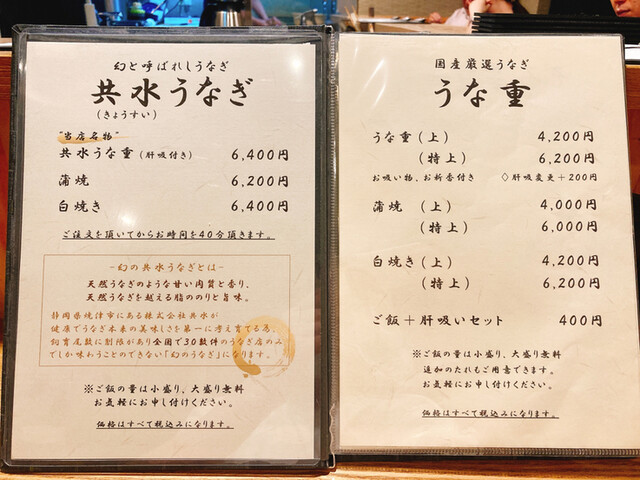 幻と呼ばれしうなぎ
共水うなぎ
(きょうすい)
"当店名物"
共水うな重(肝吸付き) 6,400円
蒲焼 6,200円
白焼き 6,400円
ご注文を頂いてからお時間を40分頂きます。
-幻の共水うなぎとは-
天然うなぎのような甘い肉質と香り、
天然うなぎを越える脂ののりと旨味。
静岡県焼津市にある株式会社共水が
健康でうなぎ本来の美味しさを第一に考え育てる為、
飼育尾数に制限があり全国で30数件のうなぎ店のみ
でしか味わうことのできない「幻のうなぎ」になります。
※ご飯の量は小盛り、大盛り無料
お気軽にお申し付けください。
価格はすべて税込みになります。
国産厳選うなぎ
うな重
うな重(上) 4,200円
(特上) 6,200円
お吸い物、お新香付き ◇肝吸変更+200円
蒲焼 (上) 4,000円
(特上) 6,000円
白焼き(上) 4,200円
(特上) 6,200円
ご飯+肝吸いセット 400円
※ご飯の量は小盛り、大盛り無料
追加のたれもご用意できます。
お気軽にお申し付けください。
価格はすべて税込みになります。